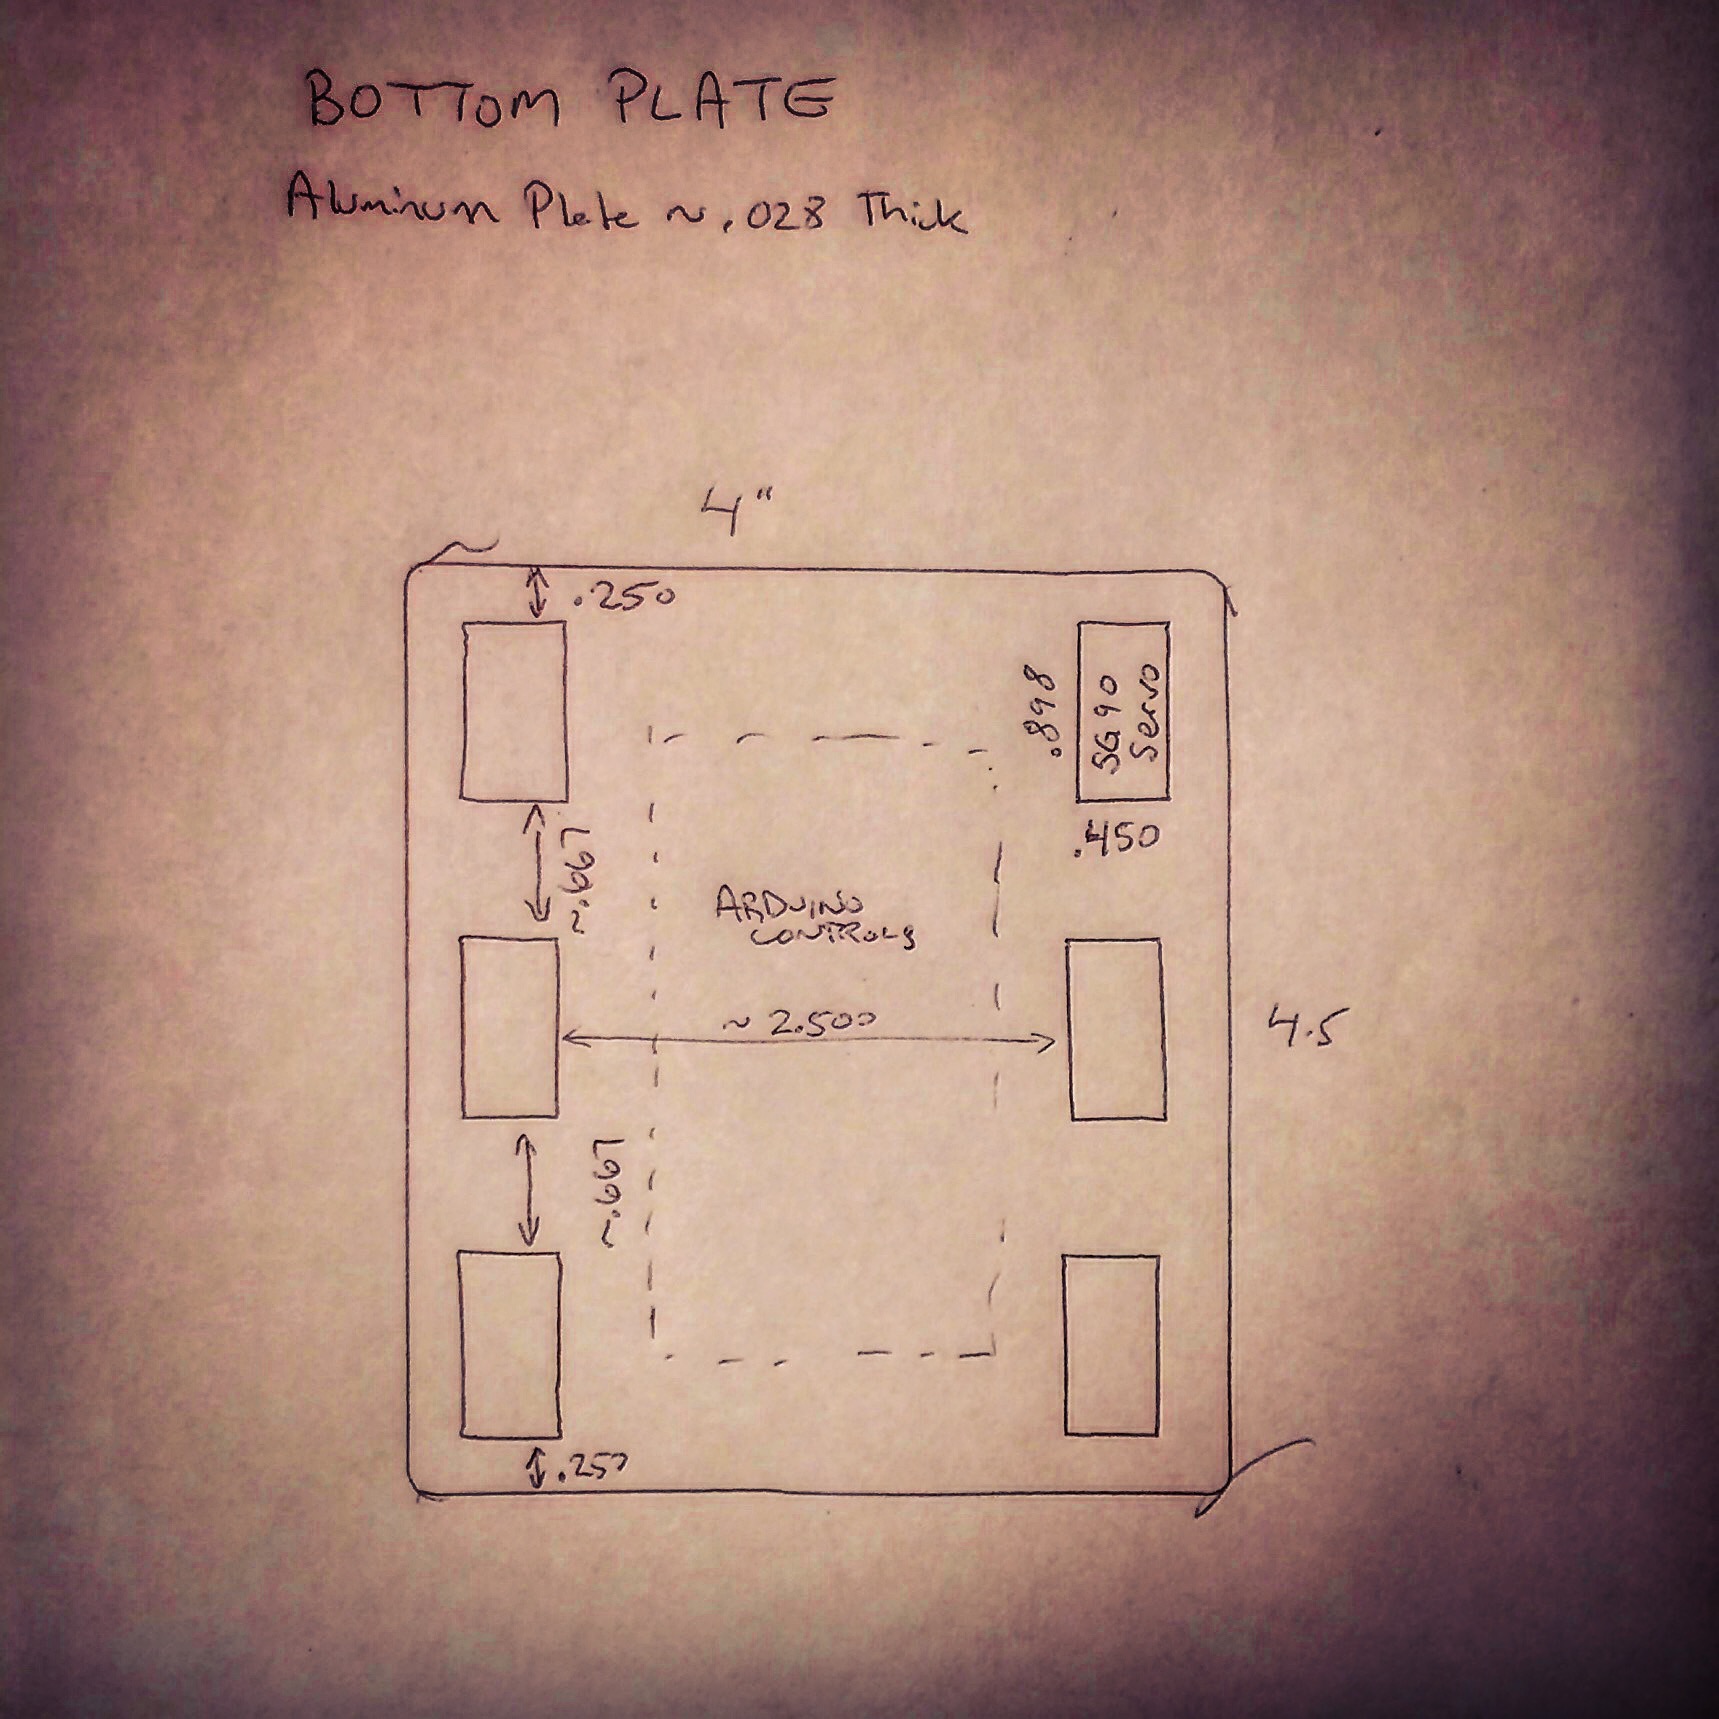 BOTTOM PLATE
Aluminum Plate ~ .028 Thick
4"
.250
.898
SG90
Servo
.450
~.667
ARDUINO
CONTROLS
~ 2.500
4.5
~.667
.250